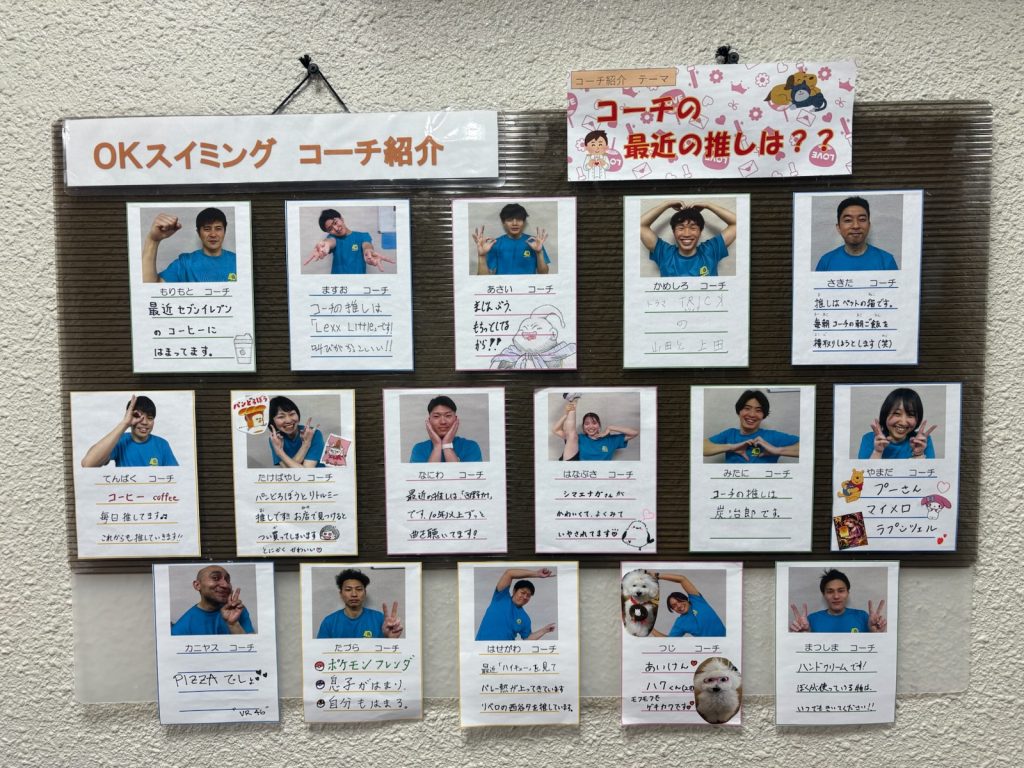 OKスイミング コーチ紹介
コーチ紹介 テーマ
コーチの
最近の推しは??
LOVE
LOVE
もりもと コーチ
最近セブンイレブン
のコーヒーに
はまってます。
ますお コーチ
コーチの推しは
「Lexx Little」です!
叫びがかっこいい!!
あさい コーチ
まじんぶう.
もちっとしてる
から!!
かめしろ コーチ
ドラマ TRICK
の
山田と上田
さきだ コーチ
推しはペットの猫です。
毎朝コーチの朝ご飯を
横取りしようとします(笑)
てんぱく コーチ
コーヒー coffee
毎日推してます♫
これからも推していきます!!
パンどろぼう
たけばやし コーチ
パンどろぼうとリトルミー
推しです!お店で見つけると
つい買ってしまいます
とにかくかわいい♡
なにわ コーチ
最近の推しは
です.10年以上ずっと
曲を聴いてます!
はなぶさ コーチ
シマエナガさんが
かわいくて、よくみて
いやされてます♡
みたに コーチ
コーチの推しは
炭治郎です.
やまだ コーチ
プーさん
マイメロ
ラプンツェル
カニヤス コーチ
PIZZAでしょ
"VR46"
たづら コーチ
ポケモンフレンダ
息子がはまり.
自分もはまる。
はせがわ コーチ
最近「ハイキュー」を見て
バレー熱が上ってきています
リベロの西谷夕を推しています。
つじ コーチ
あいけん
ハクくん
モフモフで
ゲキカワです♥
まつしま コーチ
ハンドクリームです!
ぼくが使っている種は、
いつでもきいてください!!